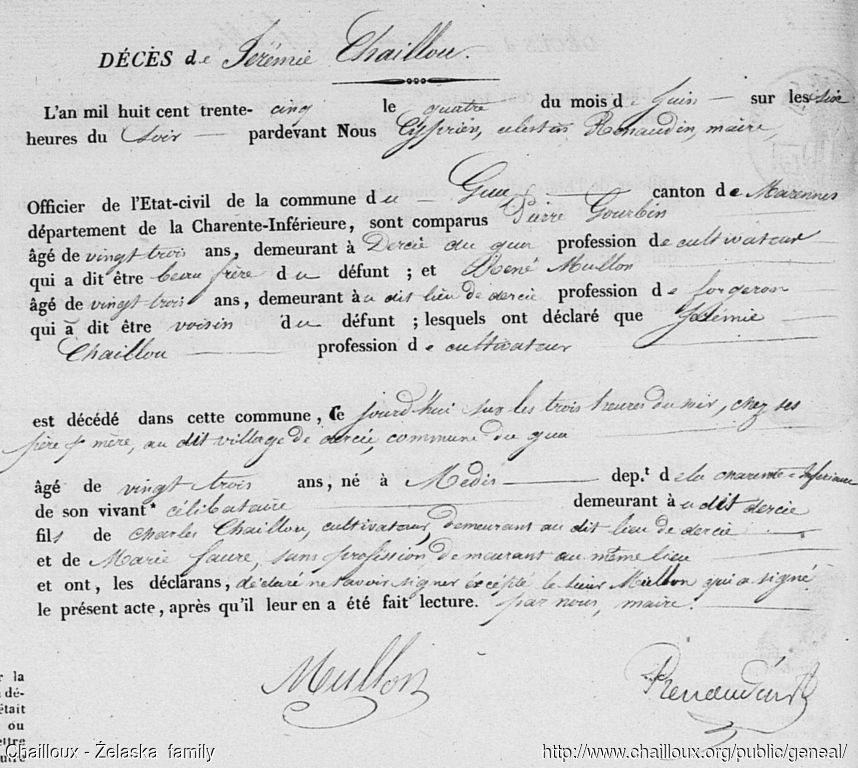 DÉCÈS de Jérémie Chaillou.
L'an mil huit cent trente- cinq le quatre du mois de Juin sur les six
heures du Soir pardevant Nous Cyprien, celestin Renaudin, maire,
Officier de l'Etat-civil de la commune du Gua canton de Marennes
département de la Charente-Inférieure, sont comparus Pierre Gourbin
âgé de vingt trois ans, demeurant à Dercie du gua profession de cultivateur
qui a dit être beau frère du défunt ; et Réné Mullon
âgé de vingt trois ans, demeurant àu dit lieu de dercie profession de forgeron
qui a dit être voisin du défunt ; lesquels ont déclaré que Jérémie
Chaillou profession de cultivateur
est décédé dans cette commune, Ce jourd'hui sur les trois heures du soir, chez ses
père & mère, au dit village de dercie, commune du gua
âgé de vingt trois ans, né à Médis dep.t de la charente Inferieure
de son vivant célibataire demeurant àu dit dercie
fils de Charles Chaillou, cultivateur, demeurant au dit lieu de dercie
et de Marie faure, sans profession demeurant au même lieu
et ont, les déclarans, déclaré ne savoir signer éxcépté le sieur Mullon qui a signé
le présent acte, après qu'il leur en a été fait lecture. par nous, maire.
Mullon
Renaudin
r la
dé-
était
ou
ettre
utre
Chailloux - Želaska family
http://www.chailloux.org/public/geneal/